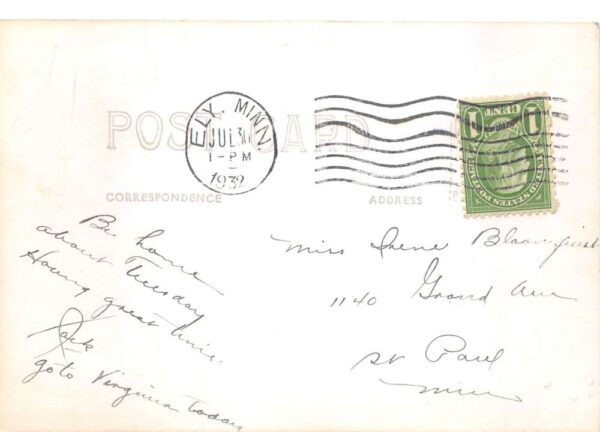 POST CARD
ELY, MINN
JUL 30
1 - PM
1932
1
1
UNITED STATES POSTAGE
CORRESPONDENCE
ADDRESS
Be home
about Tuesday
Having great time.
Jack
go to Virginia today
Miss Irene Bloomquist
1140 Grand Ave
St Paul
Minn